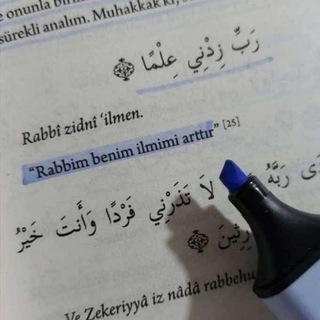 e onunla bir
sürekli analım. Muhakkak ki,
رَبِّ زِدْنِي عِلْمًا
Rabbî zidnî ‘ilmen.
“Rabbim benim ilmimi arttır” [25]
رَبَّهُ لَا تَذَرْنِي فَرْدًا وَأَنتَ خَيْرُ
Ve Zekeriyyâ iz nâdâ rabbehu